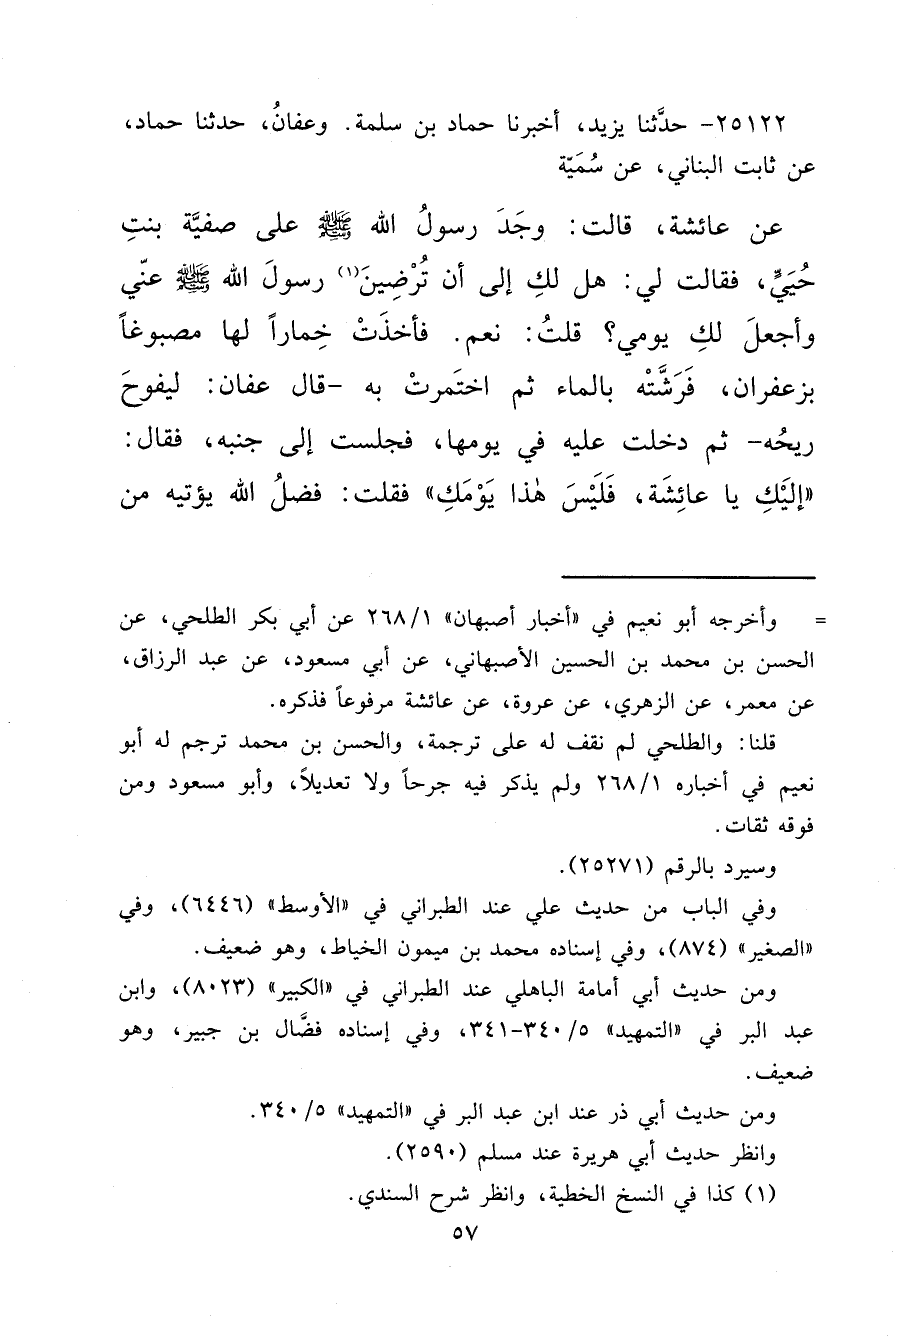 ٢٥١٢٢- حدَّثنا يزيد، أخبرنا حماد بن سلمة. وعفانُ، حدثنا حماد،
عن ثابت البناني، عن سُمَيّة
عن عائشة، قالت: وجَدَ رسولُ الله ﷺ على صفيَّة بنتِ
حُيَيٍّ، فقالت لي: هل لكِ إلى أن تُرْضِينَ(١) رسولَ الله ﷺ عنّي
وأجعلَ لكِ يومي؟ قلتُ: نعم. فأخذَتْ خِماراً لها مصبوغاً
بزعفران، فَرَشَّتْه بالماء ثم اختَمرتْ به -قال عفان: ليفوحَ
ريحُه- ثم دخلت عليه في يومها، فجلست إلى جنبه، فقال:
«إلَيْكِ يا عائِشَة، فَلَيْسَ هٰذا يَوْمَكِ» فقلت: فضلُ الله يؤتيه من
= وأخرجه أبو نعيم في «أخبار أصبهان» ٢٦٨/١ عن أبي بكر الطلحي، عن
الحسن بن محمد بن الحسين الأصبهاني، عن أبي مسعود، عن عبد الرزاق،
عن معمر، عن الزهري، عن عروة، عن عائشة مرفوعاً فذكره.
قلنا: والطلحي لم نقف له على ترجمة، والحسن بن محمد ترجم له أبو
نعيم في أخباره ٢٦٨/١ ولم يذكر فيه جرحاً ولا تعديلاً، وأبو مسعود ومن
فوقه ثقات.
وسيرد بالرقم (٢٥٢٧١).
وفي الباب من حديث علي عند الطبراني في «الأوسط» (٦٤٤٦)، وفي
«الصغير» (٨٧٤)، وفي إسناده محمد بن ميمون الخياط، وهو ضعيف.
ومن حديث أبي أمامة الباهلي عند الطبراني في «الكبير» (٨٠٢٣)، وابن
عبد البر في «التمهيد» ٣٤٠/٥-٣٤١، وفي إسناده فضَّال بن جبير، وهو
ضعيف.
ومن حديث أبي ذر عند ابن عبد البر في «التمهيد» ٣٤٠/٥.
وانظر حديث أبي هريرة عند مسلم (٢٥٩٠).
(١) كذا في النسخ الخطية، وانظر شرح السندي.
٥٧